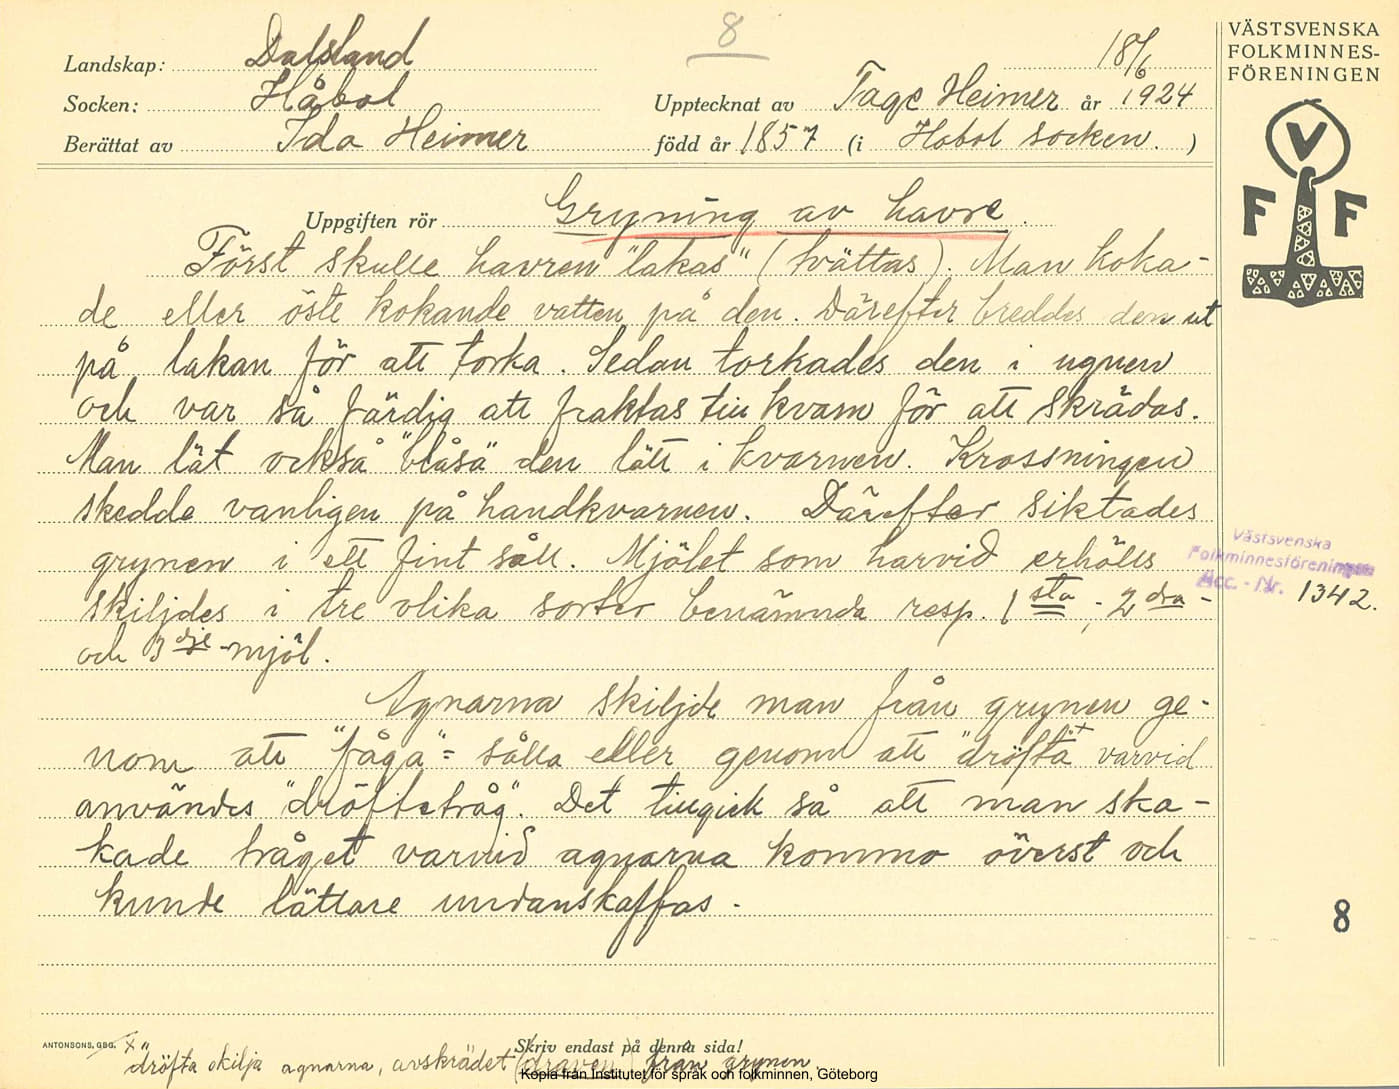 8
Landskap: Dalsland
Socken: Håbol
Berättat av Ida Heimer
18/6
Upptecknat av Tage Heimer år 1924
född år 1857 (i Håbol socken.)
VÄSTSVENSKA
FOLKMINNES-
FÖRENINGEN
V
F F
Uppgiften rör Gryning av havre.
Först skulle havren "lakas" (tvättas). Man koka-
de eller öste kokande vatten på den. Därefter breddes den ut
på lakan för att torka. Sedan torkades den i ugnen
och var så färdig att fraktas till kvarn för att skrädas.
Man lät också "blåsä" den lätt i kvarnen. Krossningen
skedde vanligen på handkvarnen. Därefter siktades
grynen i ett fint såll. Mjölet som harvid erhölls
skiljdes i tre olika sorter benämnda resp. 1 sta -; 2 dra -
och 3 dje -mjöl.
Agnarna skiljde man från grynen ge-
nom att "fåga" = sålla eller genom att "dröfta" x varvid
användes "dröftetråg". Det tillgick så att man ska-
kade tråget varvid agnarna kommo överst och
kunde lättare undanskaffas.
Västsvenska
Folkminnesföreningen
Acc. - Nr. 1342.
8
ANTONSONS, GBG.
Skriv endast på denna sida!
x "dröfta" skilja agnarna, avskrädet (draven) från grynen.
Kopia från Institutet för språk och folkminnen, Göteborg